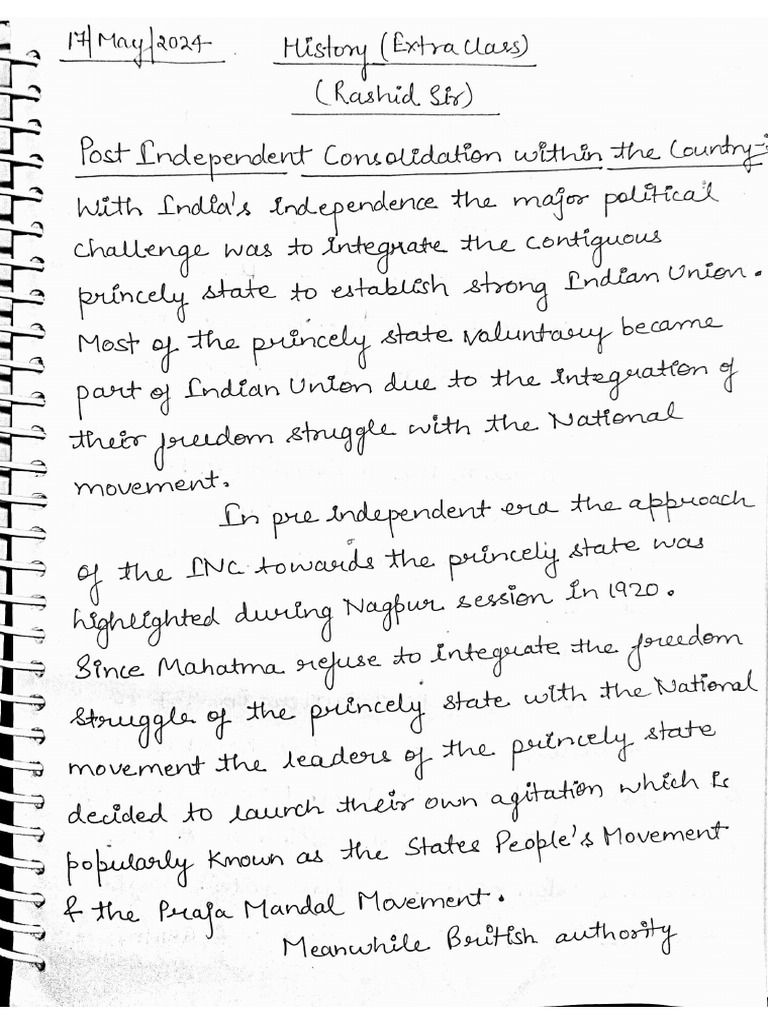 17/May/2024 History (Extra class)
(Rashid Sir)
Post Independent Consolidation within the Country:-
With India's independence the major political
challenge was to integrate the contiguous
princely state to establish strong Indian Union.
Most of the princely state voluntary became
part of Indian Union due to the integration of
their freedom struggle with the National
movement.
In pre independent era the approach
of the INC towards the princely state was
highlighted during Nagpur session in 1920.
Since Mahatma refuse to integrate the freedom
struggle of the princely state with the National
movement the leaders of the princely state
decided to launch their own agitation which is
popularly known as the States People's Movement
& the Praja Mandal Movement.
Meanwhile British authority